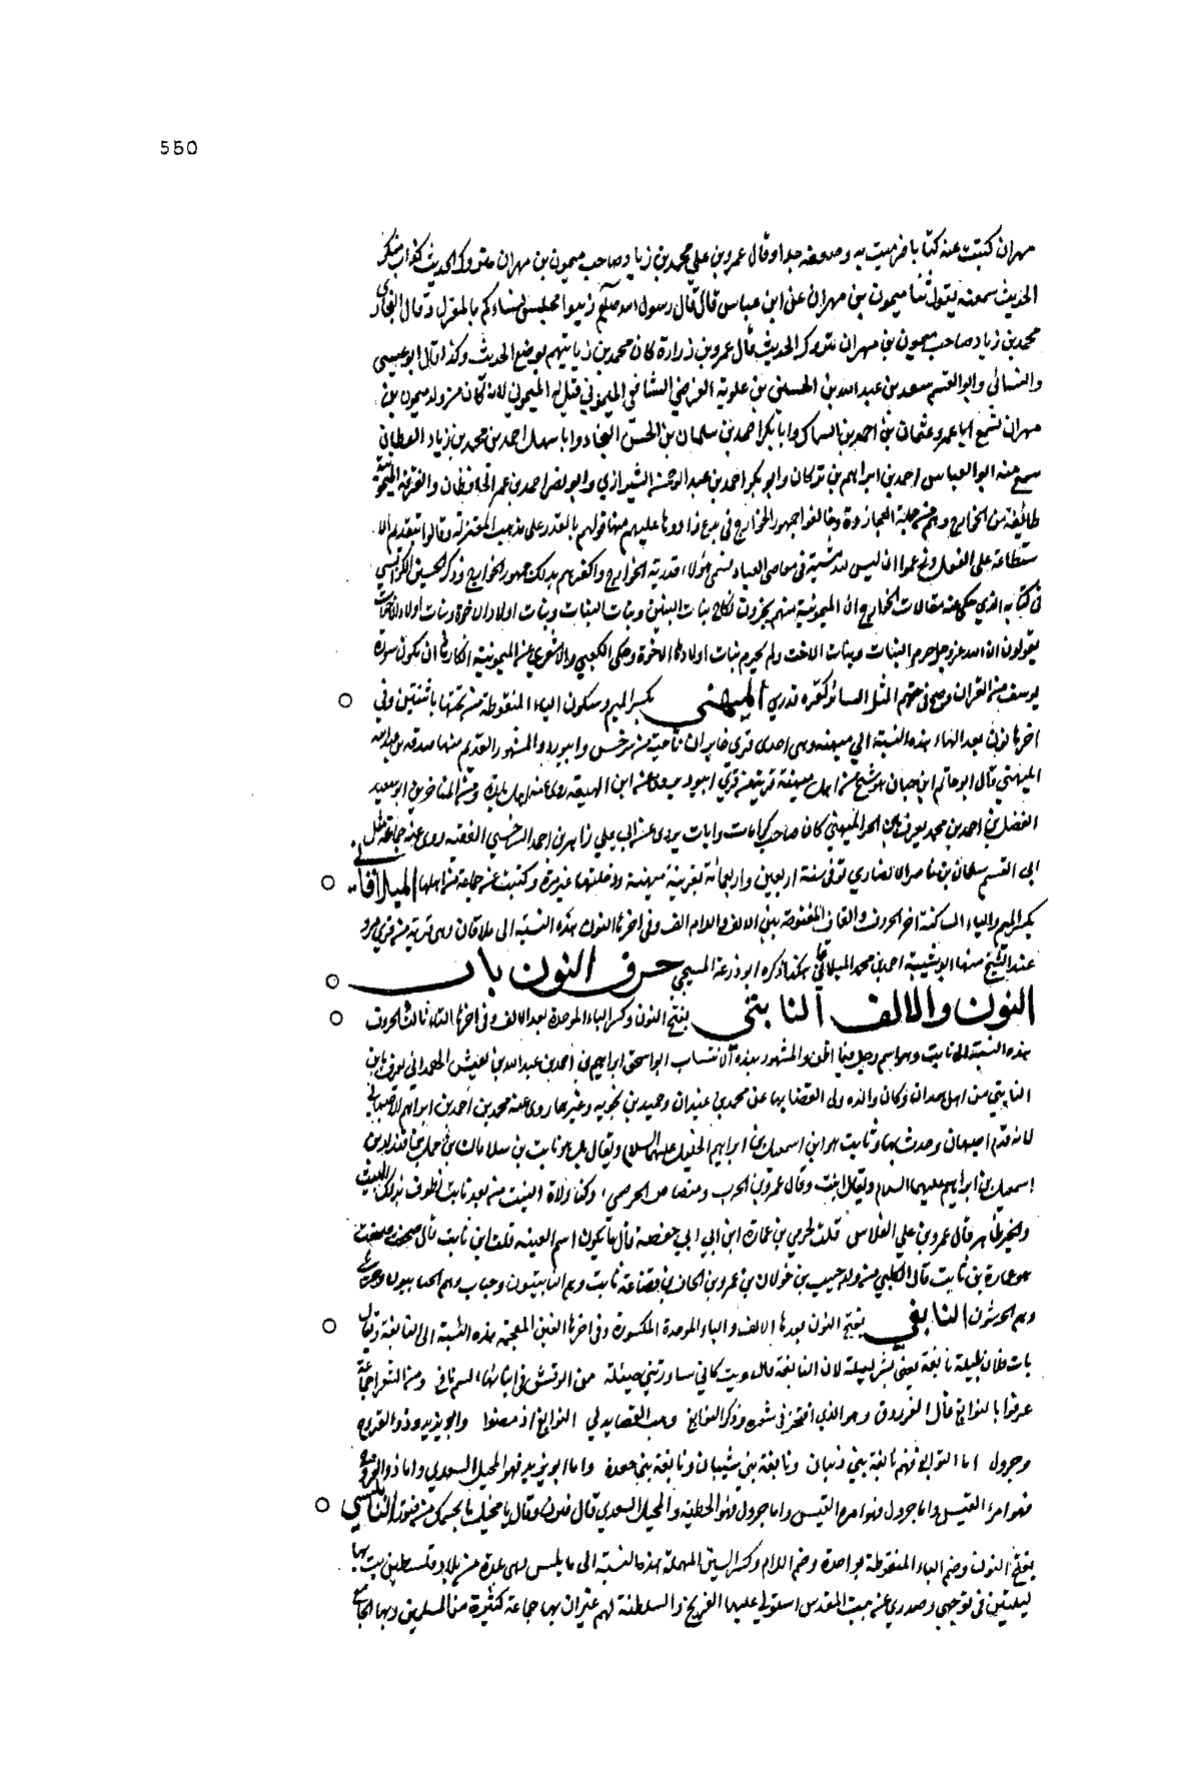 550
مهران كتبت عنه كتابا فرميت به وضعفه جدا وقال عمرو بن علي محمد بن زياد صاحب ميمون بن مهران متروك الحديث كذاب منكر
الحديث سمعته يقول ثنا ميمون بن مهران عن ابن عباس قال قال رسول الله صلعم زينوا مجلس نساءكم بالمغزل وقال البخاري
محمد بن زياد صاحب ميمون بن مهران متروك الحديث قال عمرو بن زرارة كان محمد بن زياد يتهم بوضع الحديث وكذا قال ابو عيسى
والنسائي وابو القسم سعد بن عبد الله بن الحسين بن علويه الفرضي الشافعي الميموني قيل له الميموني لانه كان من ولد ميمون بن
مهران سمع ابا عمرو عثمان بن احمد بن السماك وابا بكر احمد بن سلمان بن الحسن النجاد وابا سهل احمد بن محمد بن زياد القطان
سمع منه ابو العباس احمد بن ابراهيم بن تركان وابو بكر احمد بن عبد الرحمن الشيرازي وابو نصر احمد بن عمر الحافظان والفرقة الميمونية
طائفة من الخوارج وهم من جملة العجاردة وخالفوا جمهور الخوارج في بدع زادوها عليهم منها قولهم بالقدر على مذهب المعتزلة وقالوا بتقديم الا
ستطاعة على الفعل وزعموا ان ليس لله مشية في معاصي العباد فسمي هؤلاء قدرية الخوارج واكفرهم بذلك جمهور الخوارج وذكر الحسين الكرابيسي
في كتابه الذي حكى عنه مقالات الخوارج ان الميمونية منهم يجيزون نكاح بنات البنين وبنات البنات وبنات اولاد الاخوة وبنات اولاد الاخوات
يقولون ان الله عز وجل حرم البنات وبنات الاخت ولم يحرم بنات اولاد هؤلاء الاخوة وحكى الكعبي والاشعري عن الميمونية انكارها ان تكون سورة
يوسف من القران وصح فيهم المثل السائر كفره قدري الميهني بكسر الميم وسكون الياء المنقوطة من تحتها باثنتين وفي
اخرها نون بعد الهاء هذه النسبة الي ميهنه وهي احدى قرى خابران ناحية من سرخس وابيورد والمشهور القديم منها صدقه بن عبد الله
الميهني قال ابو حاتم ابن حبان هو شيخ من اهل ميهنة قرية من قري ابيورد يروي عن ابن الهيعة روى عنه اهل بلده ومن المتاخرين ابو سعيد
الفضل بن احمد بن محمد يعرف بابن ابي الخير الميهني كان صاحب كرامات وايات يروي عن ابي علي زاهر بن احمد السرخسي الفقيه روى عنه جماعة مثل
ابي القسم سلمان بن ناصر الانصاري توفي سنة اربعين واربعمائة بقرية ميهنة ودخلتها غير مرة وكتبت عن جماعة من اهلها الميلاقاني
بكسر الميم والياء الساكنة اخر الحروف والقاف المفتوحة بين الالف واللام الف وفي اخرها النون هذه النسبة الى ميلاقان وهي قرية من قري مرو
عند الشيخ منها ابو شيبة احمد بن محمد الميلاقاني هكذا ذكره ابو زرعة السبخي حرف النون باب
النون والالف النابتي بفتح النون وكسر الباء الموحدة بعد الالف وفي اخرها التاء ثالث الحروف
هذه النسبة الى نابت وهو اسم رجل فيما اظن والمشهور بهذه الانتساب ابو اسحق ابراهيم بن احمد بن عبد الله بن يعيش الهمداني يعرف بابن
النابتي من اهل همدان وكان والده ولي القضا بها عن محمد بن عبدان وحميد بن نجويه وغيرهما روى عنه محمد بن احمد بن ابراهيم الاصبهاني
لانه قدم اصبهان وحدث بها ونابت هو ابن اسمعيل بن ابراهيم الخليل عليهما السلام ويقال بل هو نابت بن سلامان بن حمل بن قيذار بن
اسمعيل بن ابراهيم عليهما السلام ويقال نبت وقال عمرو بن الحرث ومضاض الجرهمي وكنا ولاة البيت من بعد نابت نطوف بذاك البيت
والخير ظاهر قال عمرو بن علي الفلاس قلت لحرمي بن عمارة ابن ابي ابي حفصة قال ما يكون اسم العينه قلت ابن ثابت قال صحفت صحفت
هو عمارة بن نابت قال الكلبي من ولد حبيب بن خولان بن عمرو بن الحاف بن قضاعة نابت وهم النابتيون وحباب وهم الحبابيون
النابغي بفتح النون بعدها الالف والباء الموحدة المكسورة وفي اخرها الغين المعجمة هذه النسبة الى النابغة ويقال
بات فلان بليلة نابغة يعني بشر ليلة لان النابغة قال وبت كاني ساورتني ضئيلة من الرقش في انيابها السم ناقع ومن الشعرا جماعة
عرفوا بالنوابغ قال الفرزدق وهو الذي افتخر في شعره وذكر النوابغ وهب القصايد لي النوابغ اذ مضوا وابو يزيد وذو القروح
وجرول اما النوابغ فهم نابغة بني ذبيان ونابغة بني شيبان ونابغة بني جعدة واما ابو يزيد فهو المخبل السعدي واما ذو القروح
فهو امرؤ القيس واما جرول فهو الحطيه والمخبل السعدي النابلسي
بفتح النون وضم الباء المنقوطة بواحدة وضم اللام وكسر السين المهملة هذه النسبة الى نابلس وهي بلدة من بلاد فلسطين بت بها
ليلتين في توجهي وصدري عن بيت المقدس استولي عليها الفرنج والسلطنة لهم غير ان بها جماعة كثيرة من المسلمين وبها الجامع